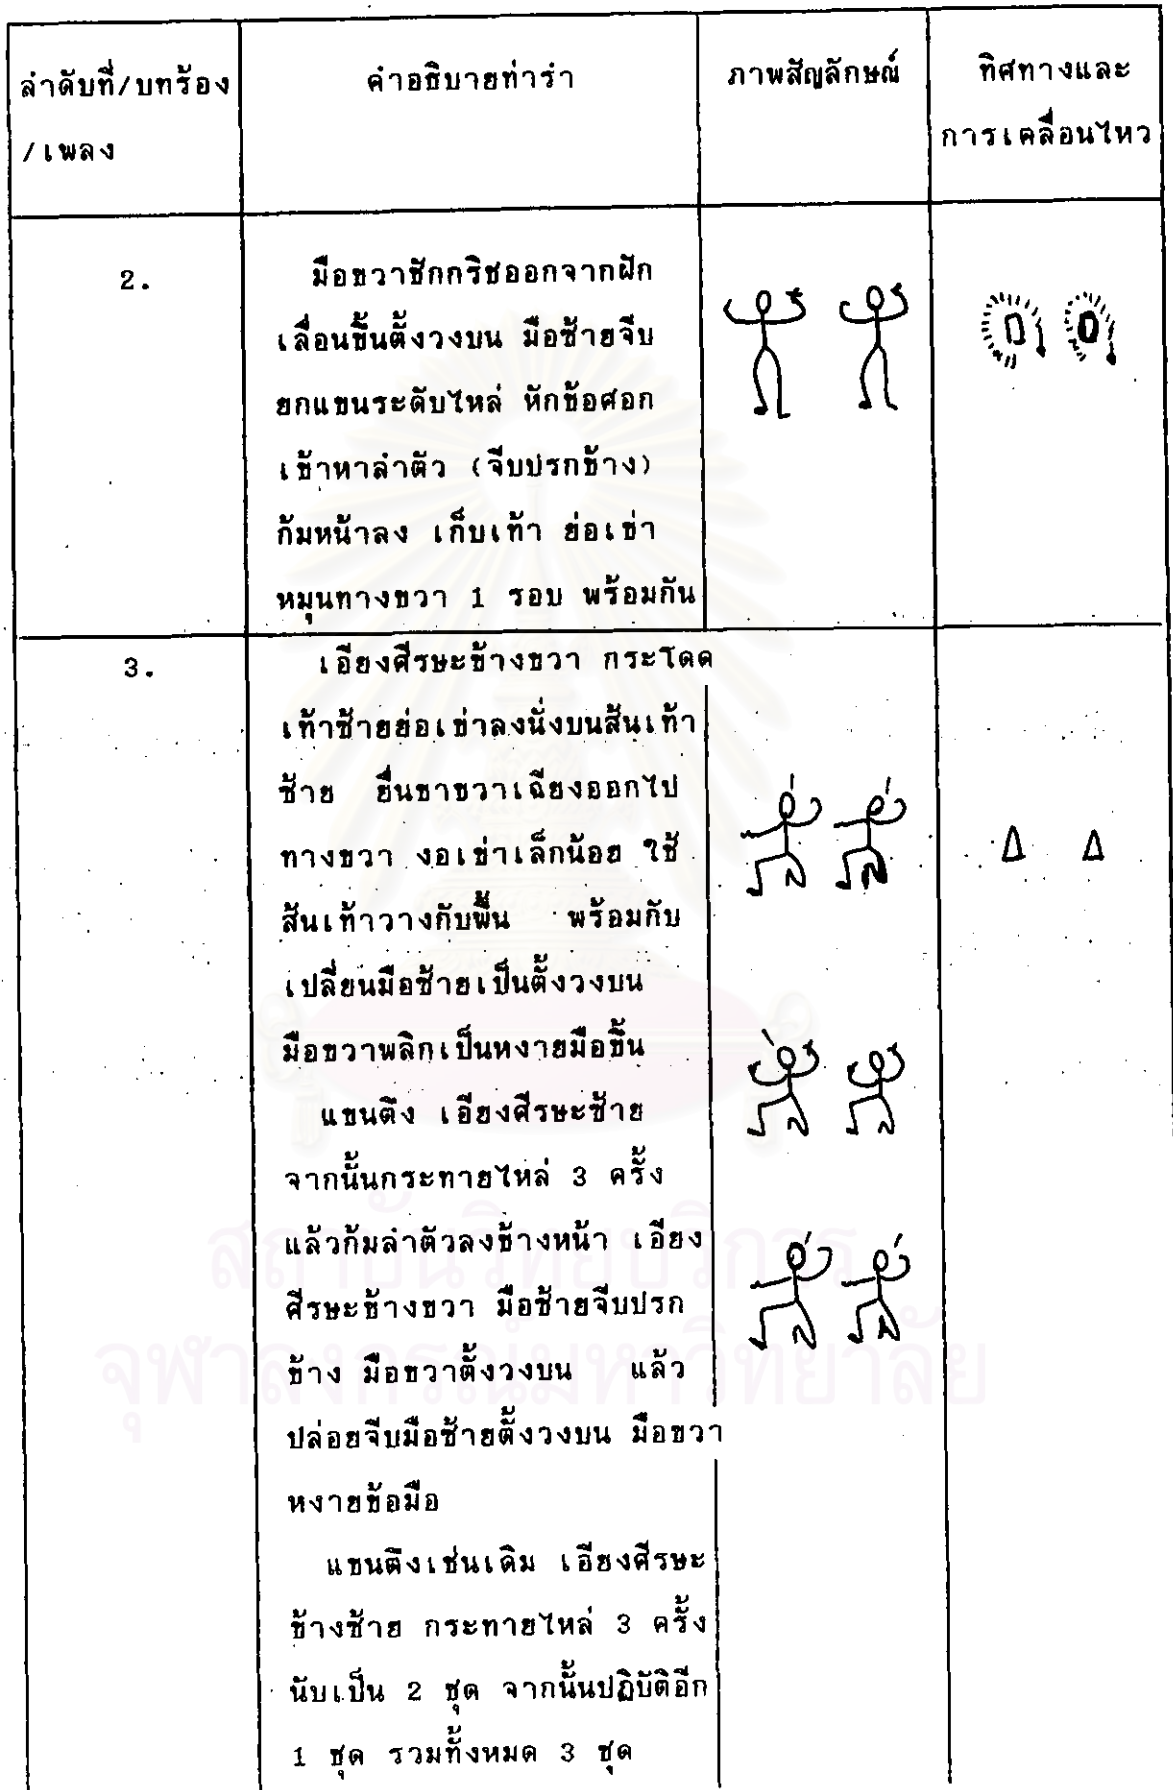 ลำดับที่/บทร้อง
/เพลง
คำอธิบายท่ารำ
ภาพสัญลักษณ์
ทิศทางและ
การเคลื่อนไหว
2.
มือขวาชักกริชออกจากฝัก
เลื่อนขึ้นตั้งวงบน มือซ้ายจีบ
ยกแขนระดับไหล่ หักข้อศอก
เข้าหาลำตัว (จีบปรกข้าง)
ก้มหน้าลง เก็บเท้า ย่อเข่า
หมุนทางขวา 1 รอบ พร้อมกัน
3.
เอียงศีรษะข้างขวา กระโดด
เท้าซ้ายย่อเข่าลงนั่งบนส้นเท้า
ซ้าย ยื่นขาขวาเฉียงออกไป
ทางขวา งอเข่าเล็กน้อย ใช้
ส้นเท้าวางกับพื้น พร้อมกับ
เปลี่ยนมือซ้ายเป็นตั้งวงบน
มือขวาพลิกเป็นหงายมือขึ้น
แขนตึง เอียงศีรษะซ้าย
จากนั้นกระทายไหล่ 3 ครั้ง
แล้วก้มลำตัวลงข้างหน้า เอียง
ศีรษะข้างขวา มือซ้ายจีบปรก
ข้าง มือขวาตั้งวงบน แล้ว
ปล่อยจีบมือซ้ายตั้งวงบน มือขวา
หงายข้อมือ
แขนตึงเช่นเดิม เอียงศีรษะ
ข้างซ้าย กระทายไหล่ 3 ครั้ง
นับเป็น 2 ชุด จากนั้นปฏิบัติอีก
1 ชุด รวมทั้งหมด 3 ชุด
สถาบันวิทยบริการ
จุฬาลงกรณ์มหาวิทยาลัย